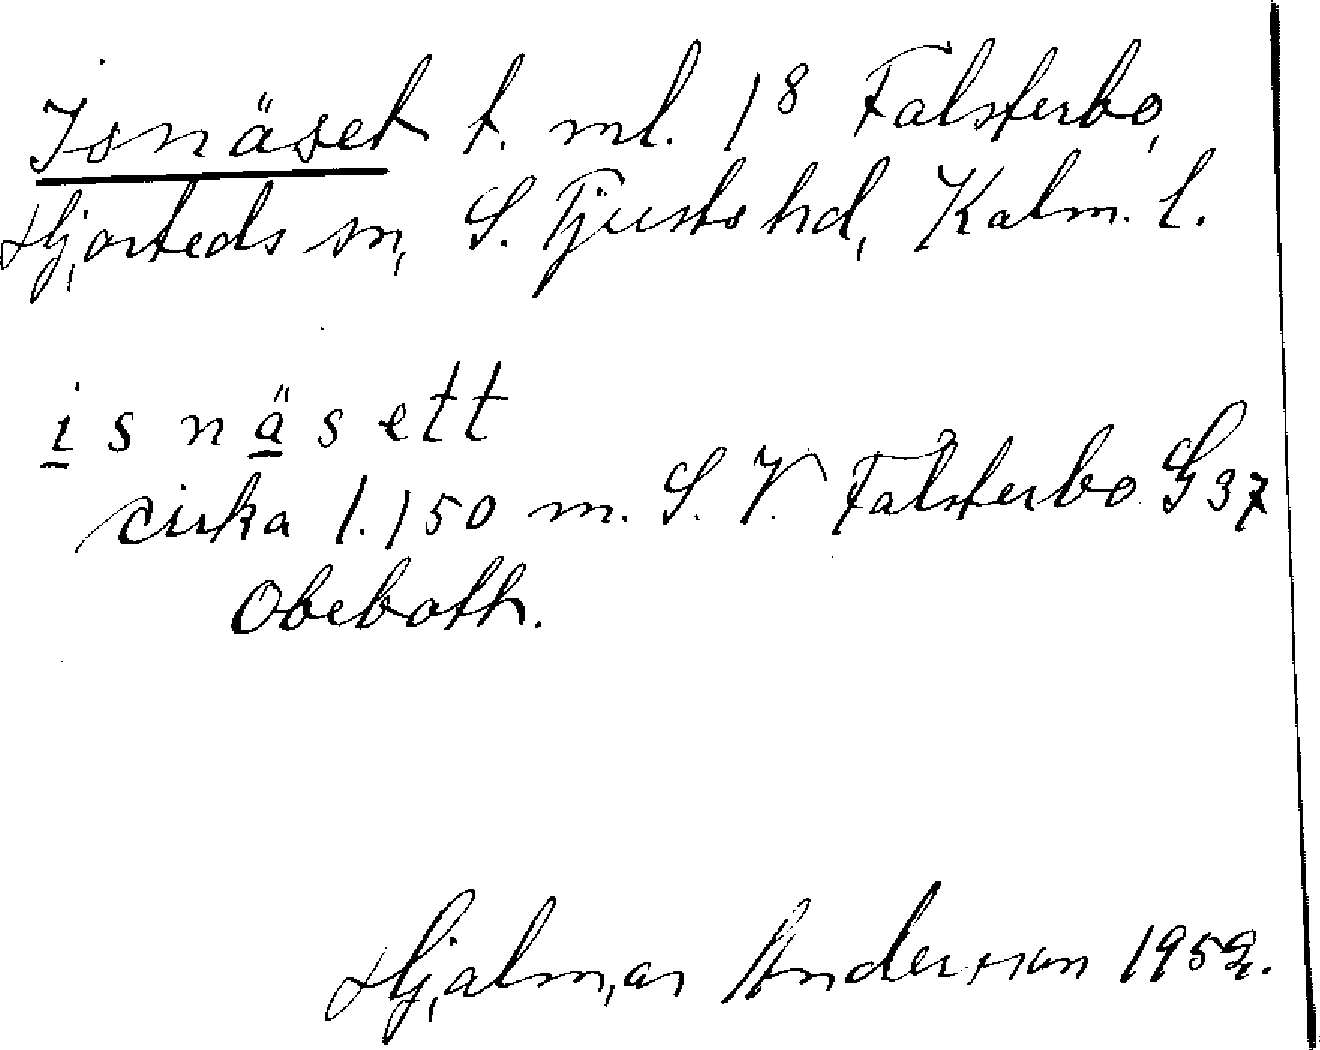 Isnäset t. ml. 1⁸ Falsterbo,
Hjorteds sn, S. Tjusts hd, Kalm. l.
i s n ä s ett
cirka 1.150 m. S. V. Falsterbo. G 37
Obeboth.
Hjalmar Andersson 1952.